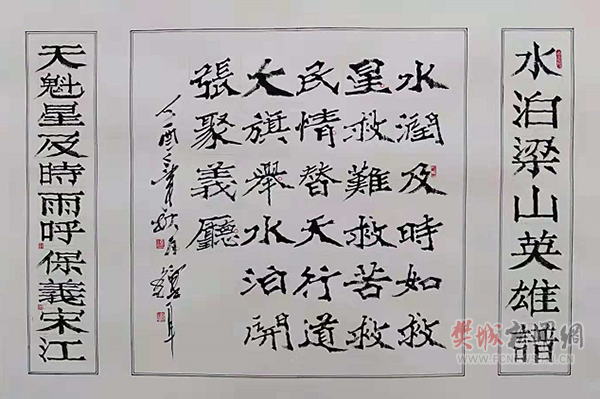 水泊梁山英雄譜
水潤及時如救
星救難救苦救
民情替天行道
大旗舉水泊開
張聚義廳
天魁星及時雨呼保義宋江